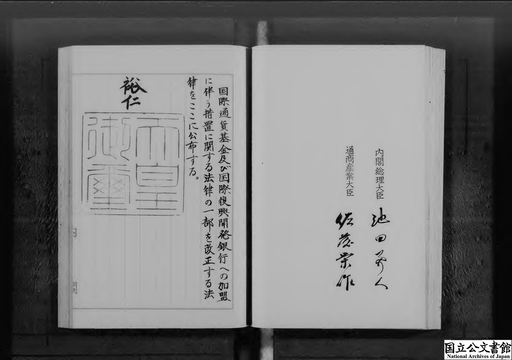 内閣総理大臣
池田勇人
通商産業大臣
佐藤栄作
国際通貨基金及び国際復興開発銀行への加盟
に伴う措置に関する法律の一部を改正する法
律をここに公布する。
裕仁
天皇
御璽
国立公文書館
National Archives of Japan